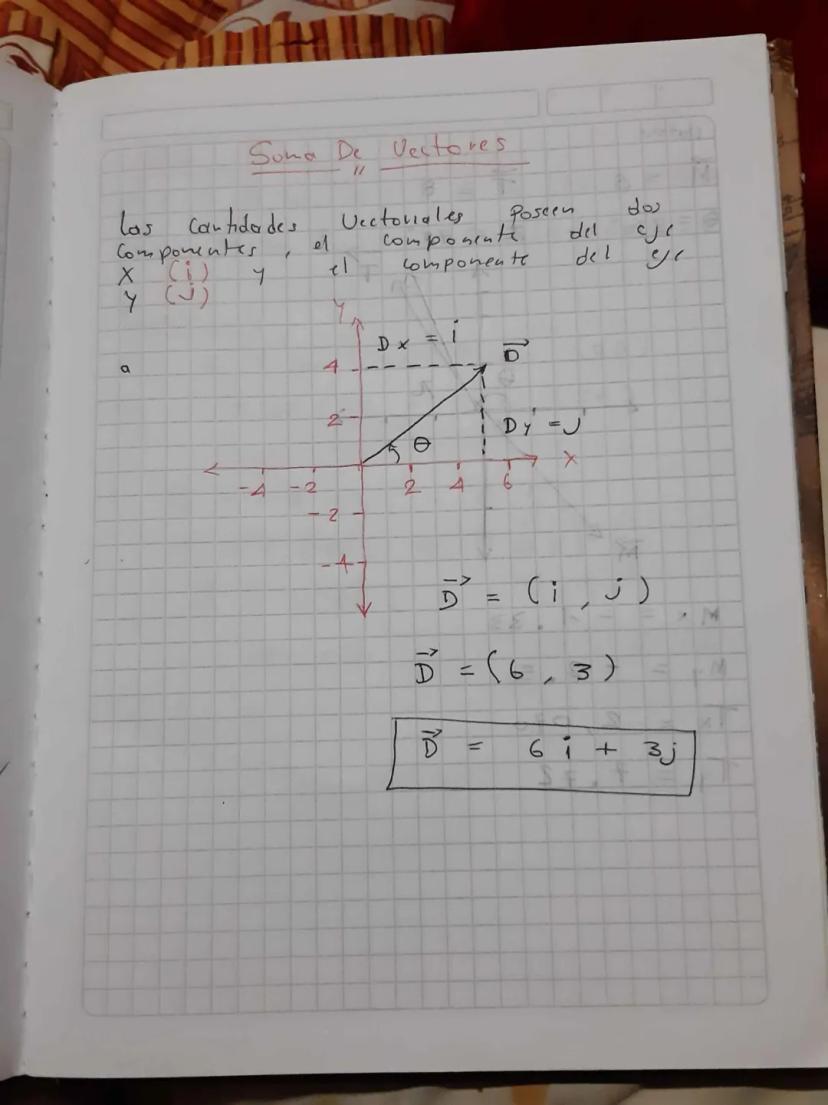 Suma De Vectores
"
Las cantidades Vectoriales poseen dos
componentes, el componente del eje
X (i) y el componente del eje
Y (j)
Y
Dx = i
D⃗
a
4
2
θ
Dy = j
X
-4 -2 2 4 6
-2
-4
D⃗ = (i, j)
D⃗ = (6, 3)
D⃗ = 6i + 3j